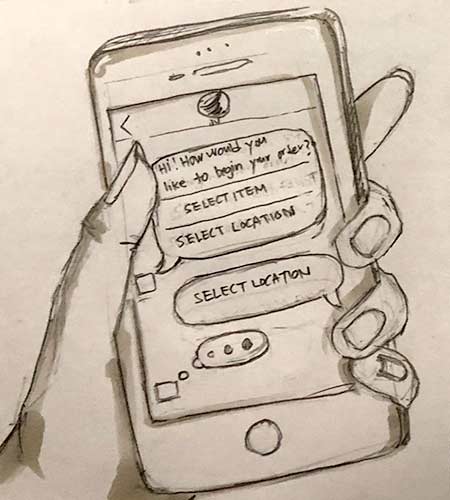 Hi! How would you
like to begin your order?
SELECT ITEM
SELECT LOCATION
SELECT LOCATION